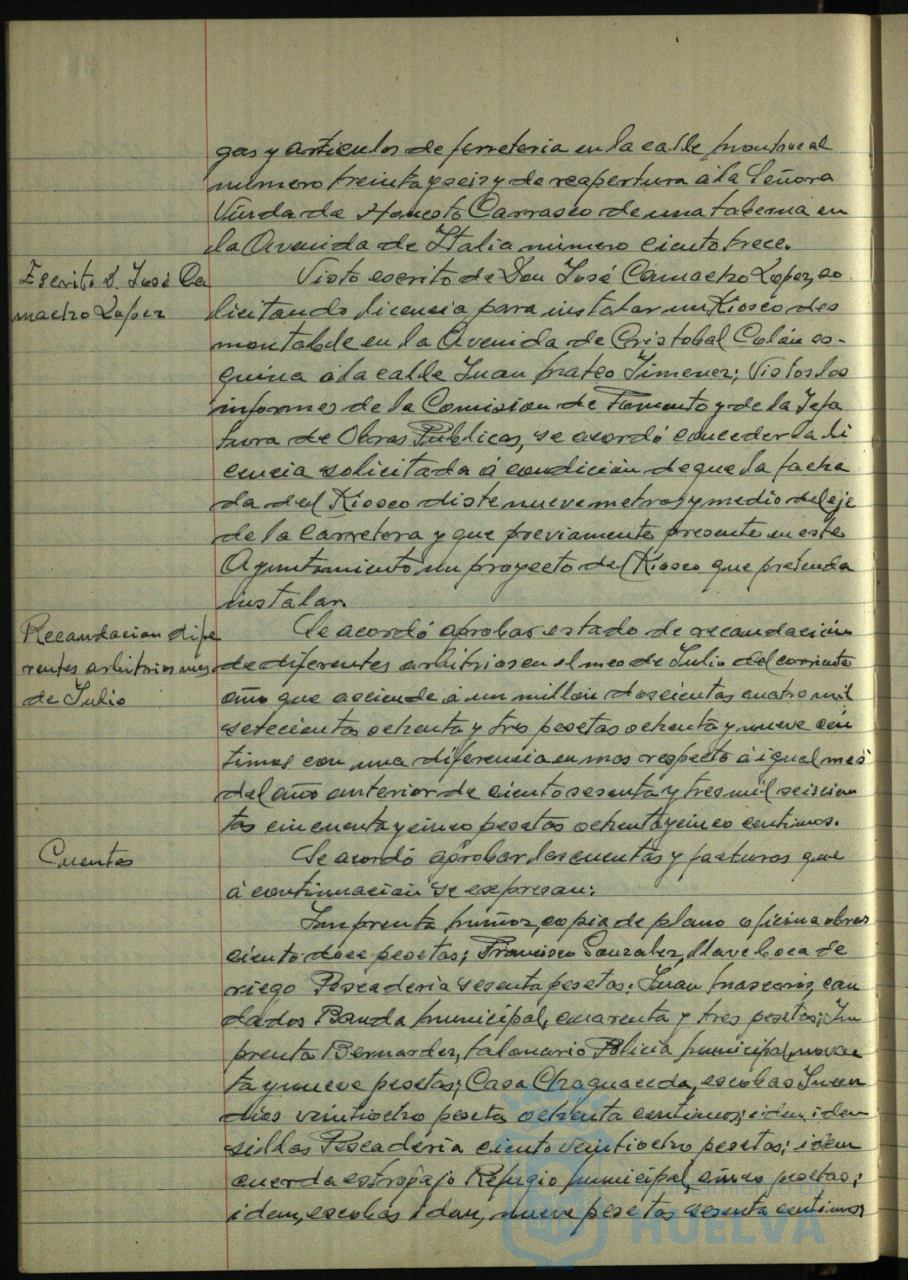 gas y artículos de ferreteria en la calle Monpreal
numero treinta y seis y de reapertura á la Señora
Viuda de Honesto Carrasco de una taberna en
la Avenida de Italia numero ciento trece.
Escrito D. José Ca
machro Lopez
Visto escrito de Don José Camacho Lopez, so
licitando licencia para instalar un Kiosco des
montable en la Avenida de Cristobal Colón es-
quina á la calle Juan Mateo Jimenez; Vistos los
informes de la Comision de Fomento y de la Jefa
tura de Obras Públicas, se acordó conceder la li
cencia solicitada á condición de que la facha
da del Kiosco diste nueve metros y medio del eje
de la carretera y que previamente presente en este
Ayuntamiento un proyecto del Kiosco que pretenda
instalar.
Recaudacion dife
rentes arbitrios mes
de Julio
Se acordó aprobar estado de recaudación
de diferentes arbitrios en el mes de Julio del corriente
año que asciende á un millón doscientas cuatro mil
setecientas ochenta y tres pesetas ochenta y nueve cen
timos con una diferencia en mas respecto á igual mes
del año anterior de ciento sesenta y tres mil seiscien
tas cincuenta y cinco pesetas ochenta y cinco centimos.
Cuentas
Se acordó aprobar las cuentas y facturas que
á continuación se expresan:
Imprenta Muñoz, copia de plano oficina obras
ciento doce pesetas; Francisco Gonzalez, llave boca de
riego Pescaderia sesenta pesetas: Juan Mascaros, can
dados Banda Municipal, cuarenta y tres pesetas; Im
prenta Bernardez, talonario Policia Municipal, noven
ta y nueve pesetas; Casa Chaguaceda, escobas Incen
dios veintiocho pesetas ochenta centimos; idem, idem
sillas Pescaderia ciento veintiocho pesetas; idem
cuerda estropajo Refugio Municipal, cinco pesetas;
idem, escobas idem, nueve pesetas sesenta centimos
Ayuntamiento de
HUELVA